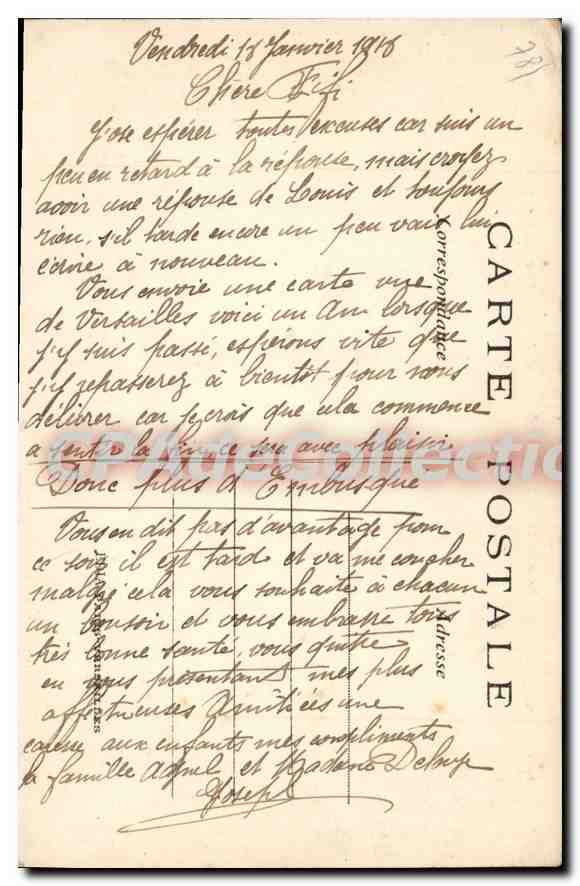 Vendredi 18 Janvier 1918
Chère Fifi
J'ose espérer toutes excuses car suis un
peu en retard à la réponse, mais croyez
avoir une réponse de Louis et toujours
rien, s'il tarde encore un peu vais lui
écrire à nouveau.
Vous envoie une carte vue
de Versailles voici un An lorsque
j'y suis passé, espérons vite que
j'y repasserez à bientot pour vous
délivrer car je crois que cela commence
a sentir la fin, ce sera avec plaisir
Donc plus d'Embusqué
Vous en dit pas d'avantage pour
ce soir il est tard et va me coucher
malgré cela vous souhaite à chacun
un bonsoir et vous embrasse tous
très bonne santé, vous quitte
en vous présentant mes plus
affectueuses Amitiées une
caresse aux enfants mes compliments
la famille et Madame
Joseph
CARTE POSTALE
Correspondance
Adresse
CPA-Collection